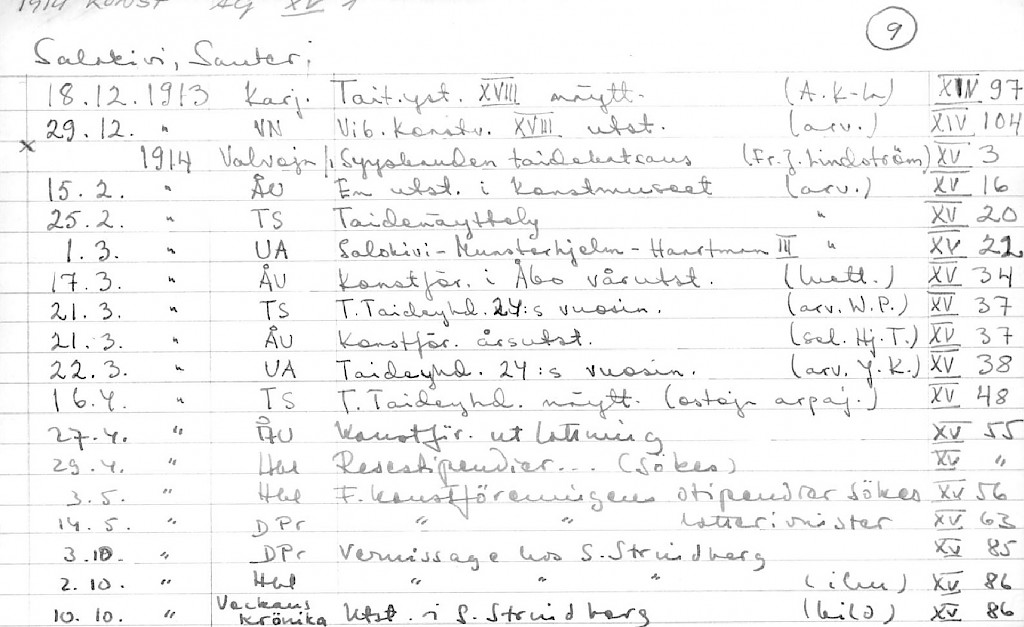 1914 KONST AG XV 1
9
Salokivi, Santeri
18.12.1913 Karj. Tait.yst. XVIII näytt. (A.K-la) XIV 97
29.12. " VN Vib. Konstv. XVIII utst. (arv.) XIV 104
x 1914 Valvoja Syyskauden taidekatsaus (Fr. J. Lindström) XV 3
15.2. " ÅU En utst. i Konstmuseet (arv.) XV 16
25.2. " TS Taidenäyttely " XV 20
1.3. " UA Salokivi-Munsterhjelm-Haartman III " XV 22
17.3. " ÅU Konstför. i Åbo vårutst. (luett.) XV 34
21.3. " TS T.Taideyhd. 24:s vuosin. (arv. W.P.) XV 37
21.3. " ÅU Konstför. årsutst. (sel. Hj.T.) XV 37
22.3. " UA Taideyhd. 24:s vuosin. (arv. Y.K.) XV 38
16.4. " TS T.Taideyhd. näytt. (ostoja arpaj.) XV 48
27.4. " ÅU Konstför. utlottning XV 55
29.4. " Hbl Resestipendier... (sökes) XV "
3.5. " Hbl F.konstföreningens stipendier sökes XV 56
14.5. " DPr " " lotterivinster XV 63
3.10. " DPr Vernissage hos S.Strindberg XV 85
2.10. " Hbl " " " (ilm) XV 86
10.10. " Veckans Krönika Utst. i S.Strindberg (bild) XV 86